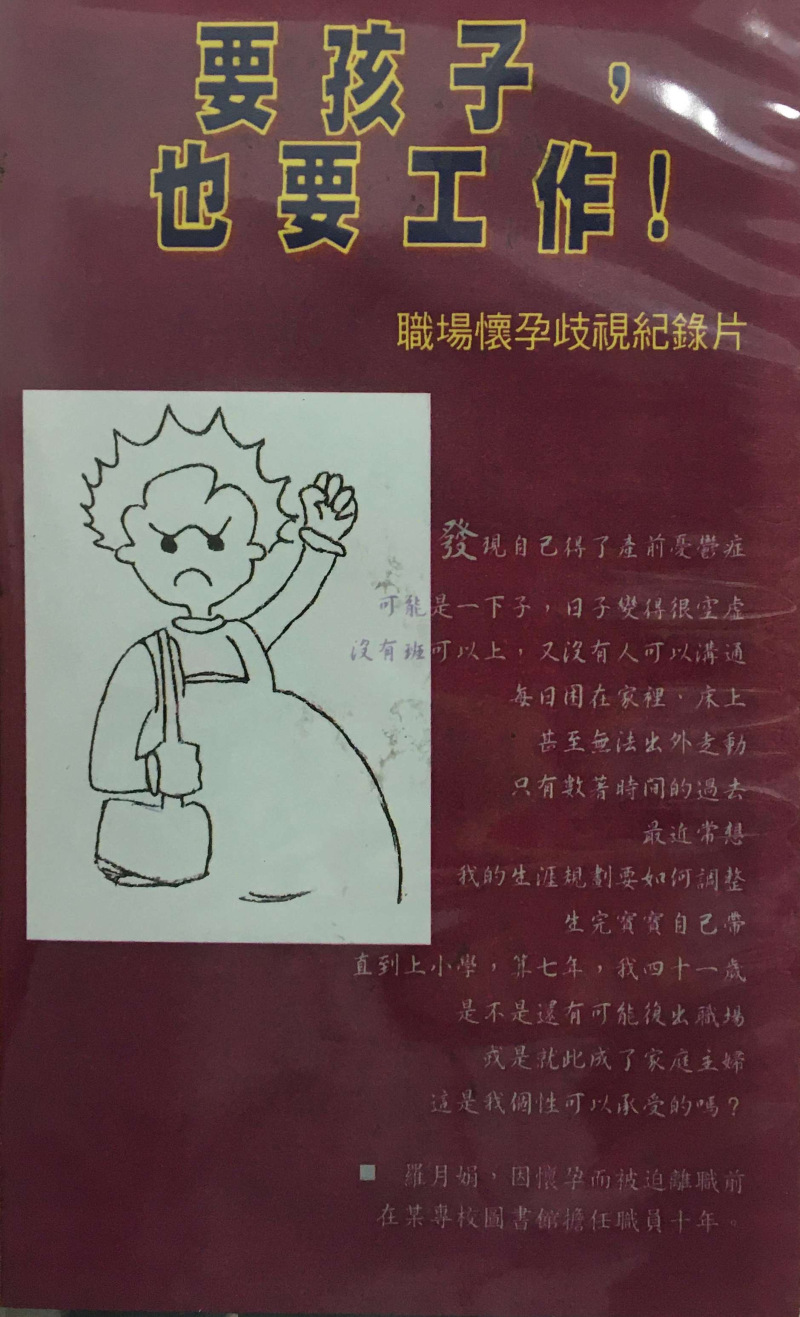 要孩子，
也要工作！
職場懷孕歧視紀錄片
發現自己得了產前憂鬱症
可能是一下子，日子變得很空虛
沒有班可以上，又沒有人可以溝通
每日困在家裡、床上
甚至無法出外走動
只有數著時間的過去
最近常想
我的生涯規劃要如何調整
生完寶寶自己帶
直到上小學，算七年，我四十一歲
是不是還有可能復出職場
或是就此成了家庭主婦
這是我個性可以承受的嗎？
■ 羅月娟，因懷孕而被迫離職前
在某專校圖書館擔任職員十年。